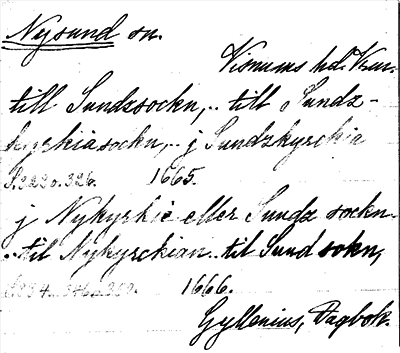 Nysund sn.
Visnums hd. Vrm.
till Sundzsockn,.. till Sundz-
kyrkiasockn,.. j Sundzkyrckia
1665.
j Nykyrkie eller Sundz sockn
..til Nykyrckian..til Sund sokn,
1666.
Gyllenius, Dagbok.